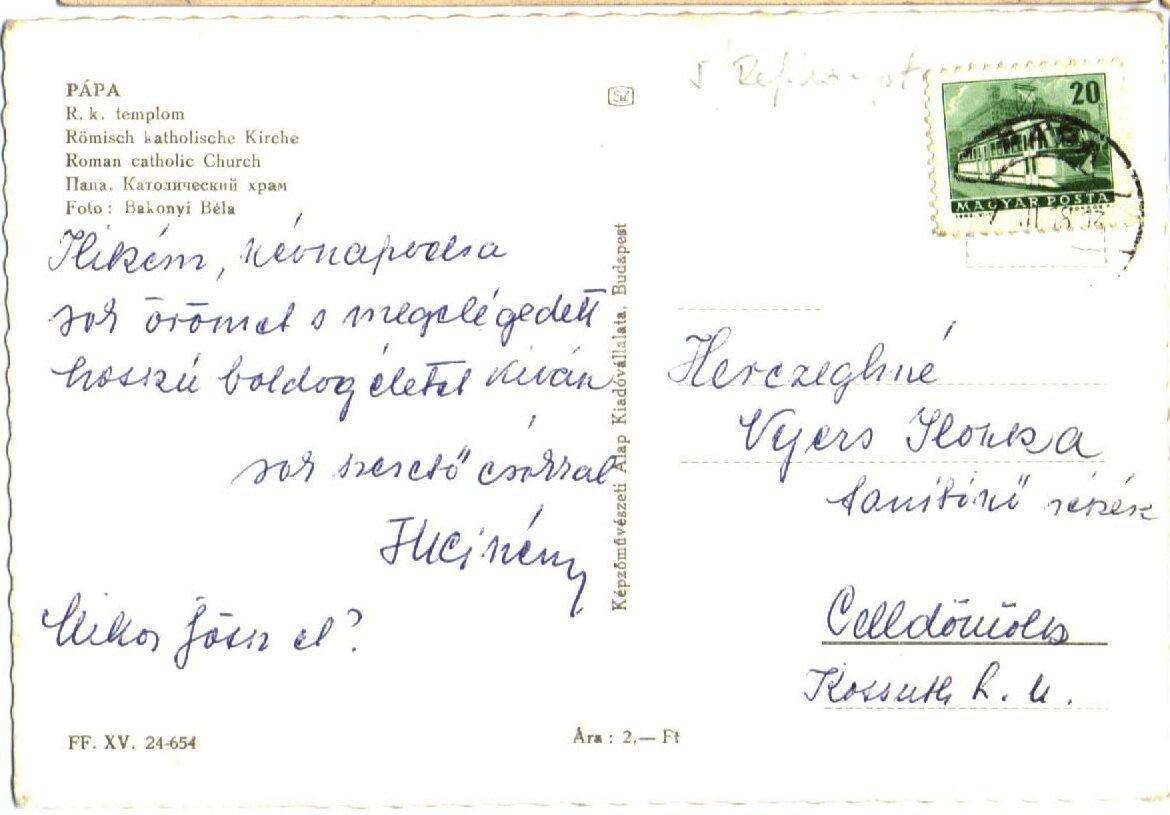 PÁPA
R. k. templom
Römisch katholische Kirche
Roman catholic Church
Папа. Католический храм
Foto : Bakonyi Béla
Ilikém, névnapodra
sok örömet s megelégedett
hosszú boldog életet kíván
sok szerető csókkal
Mikor jössz el?
FF. XV. 24-654
Ára : 2,— Ft
Képzőművészeti Alap Kiadóvállalata, Budapest
20
MAGYAR POSTA
Herczeghné
Vyers Ilonka
tanítónő részére
Celldömölk
Kossuth L. u.